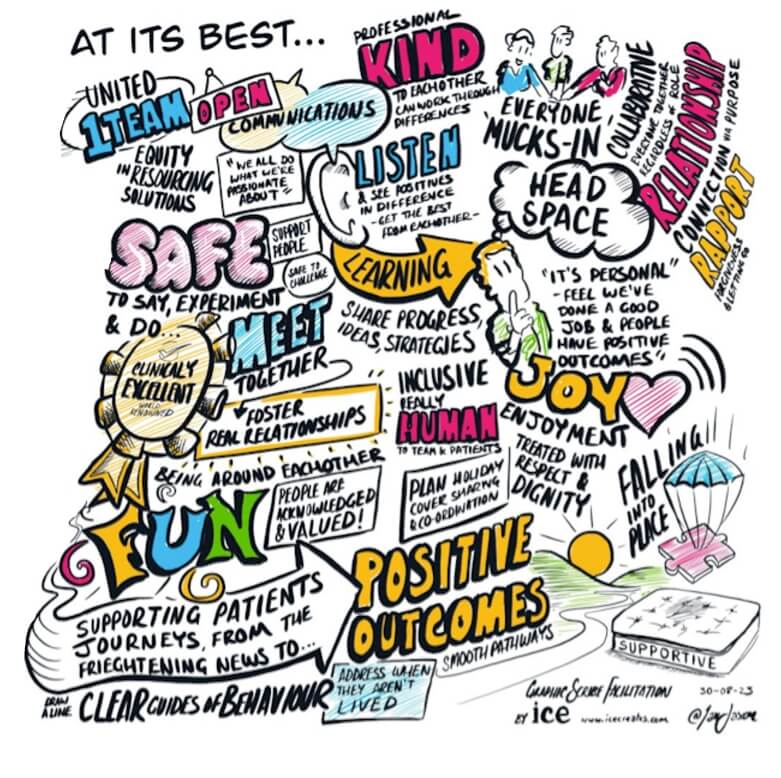 AT ITS BEST...
PROFESSIONAL
KIND
TO EACHOTHER
CAN WORK THROUGH
DIFFERENCES
UNITED
1TEAM
OPEN
COMMUNICATIONS
EQUITY
IN RESOURCING
SOLUTIONS
"WE ALL DO
WHAT WE'RE
PASSIONATE
ABOUT"
LISTEN
& SEE POSITIVES
IN DIFFERENCE
- GET THE BEST
FROM EACHOTHER -
EVERYONE
MUCKS-IN
COLLABORATIVE
EVERYONE TOGETHER
REGARDLESS OF ROLE
RELATIONSHIP
CONNECTION VIA PURPOSE
RAPPORT
FORGIVENESS
& LETTING GO
HEAD
SPACE
SAFE
SUPPORT
PEOPLE
SAFE TO
CHALLENGE
TO SAY, EXPERIMENT
& DO...
LEARNING
SHARE PROGRESS,
IDEAS, STRATEGIES
"IT'S PERSONAL"
- FEEL WE'VE
DONE A GOOD
JOB & PEOPLE
HAVE POSITIVE
OUTCOMES"
CLINICALY
EXCELLENT
WORLD
RENOWNED
MEET
TOGETHER
FOSTER
REAL RELATIONSHIPS
INCLUSIVE
REALLY
HUMAN
TO TEAM & PATIENTS
JOY
ENJOYMENT
TREATED WITH
RESPECT &
DIGNITY
FALLING
INTO
PLACE
BEING AROUND EACHOTHER
FUN
PEOPLE ARE
ACKNOWLEDGED
& VALUED!
PLAN HOLIDAY
COVER SHARING
& CO-ORDINATION
SUPPORTING PATIENTS
JOURNEYS, FROM THE
FRIEGHTENING NEWS TO...
POSITIVE
OUTCOMES
SMOOTH PATHWAYS
SUPPORTIVE
DRAW
A LINE
CLEAR GUIDES OF BEHAVIOUR
ADDRESS WHEN
THEY AREN'T
LIVED
GRAPHIC SCRIBE FACILITATION
BY ice www.icecreates.com
30-08-23